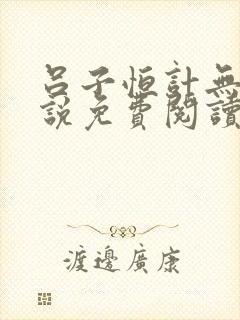 呂子恒計無
説免費閱讀
渡邊廣康